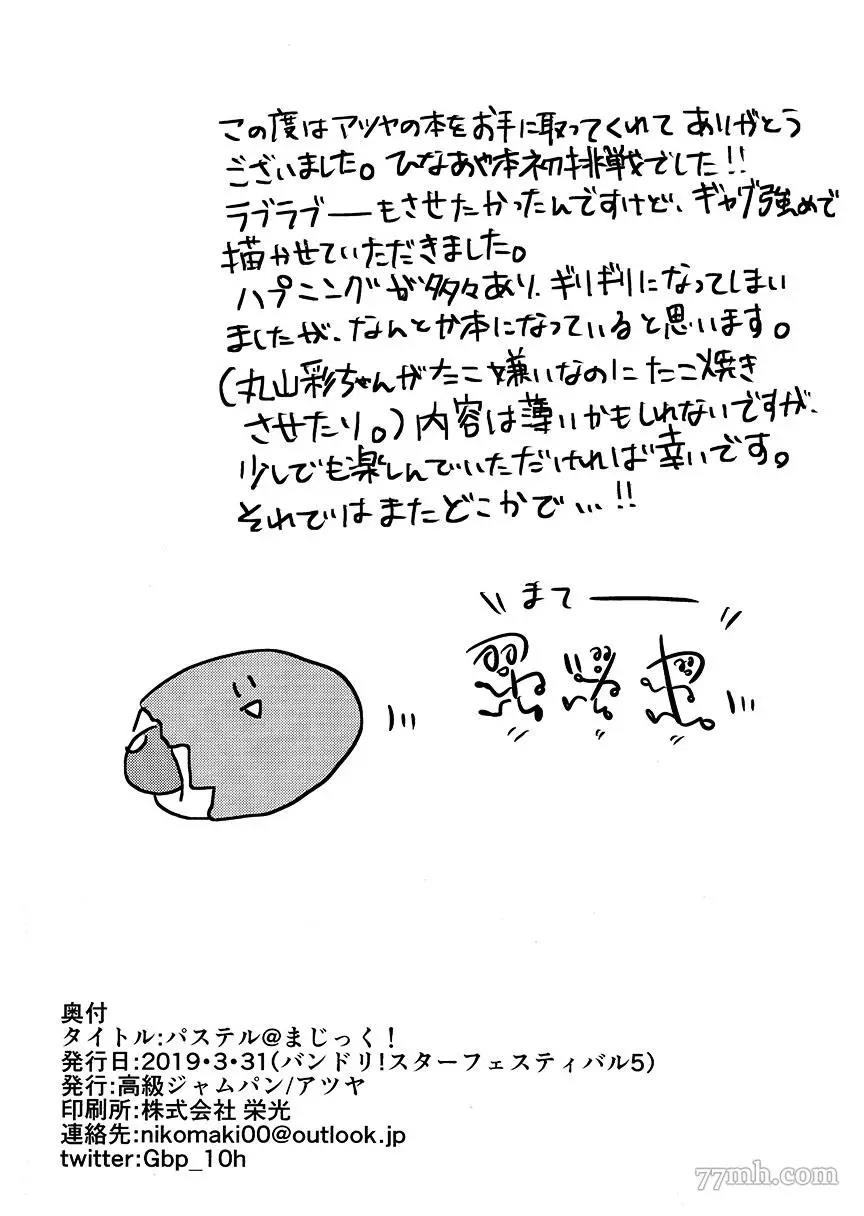 この度はアツヤの本をお手に取ってくれて ありがとう
ございました。ひなあや本初挑戦でした!!
ラブラブーーもさせたかったんですけど、ギャグ強めで
描かせていただきました。
ハプニングが多々あり、ギリギリになってしまい
ましたが、なんとか本になっていると思います。
(丸山彩ちゃんがたこ嫌いなのにたこ焼き
させたり。)内容は薄いかもしれないですが、
少しでも楽しんでいただければ幸いです。
それではまたどこかで...!!
まてーー
奥付
タイトル:パステル@まじっく!
発行日:2019・3・31(バンドリ!スターフェスティバル5)
発行:高級ジャムパン/アツヤ
印刷所:株式会社 栄光
連絡先:nikomaki00@outlook.jp
twitter:Gbp_10h
77mh.com